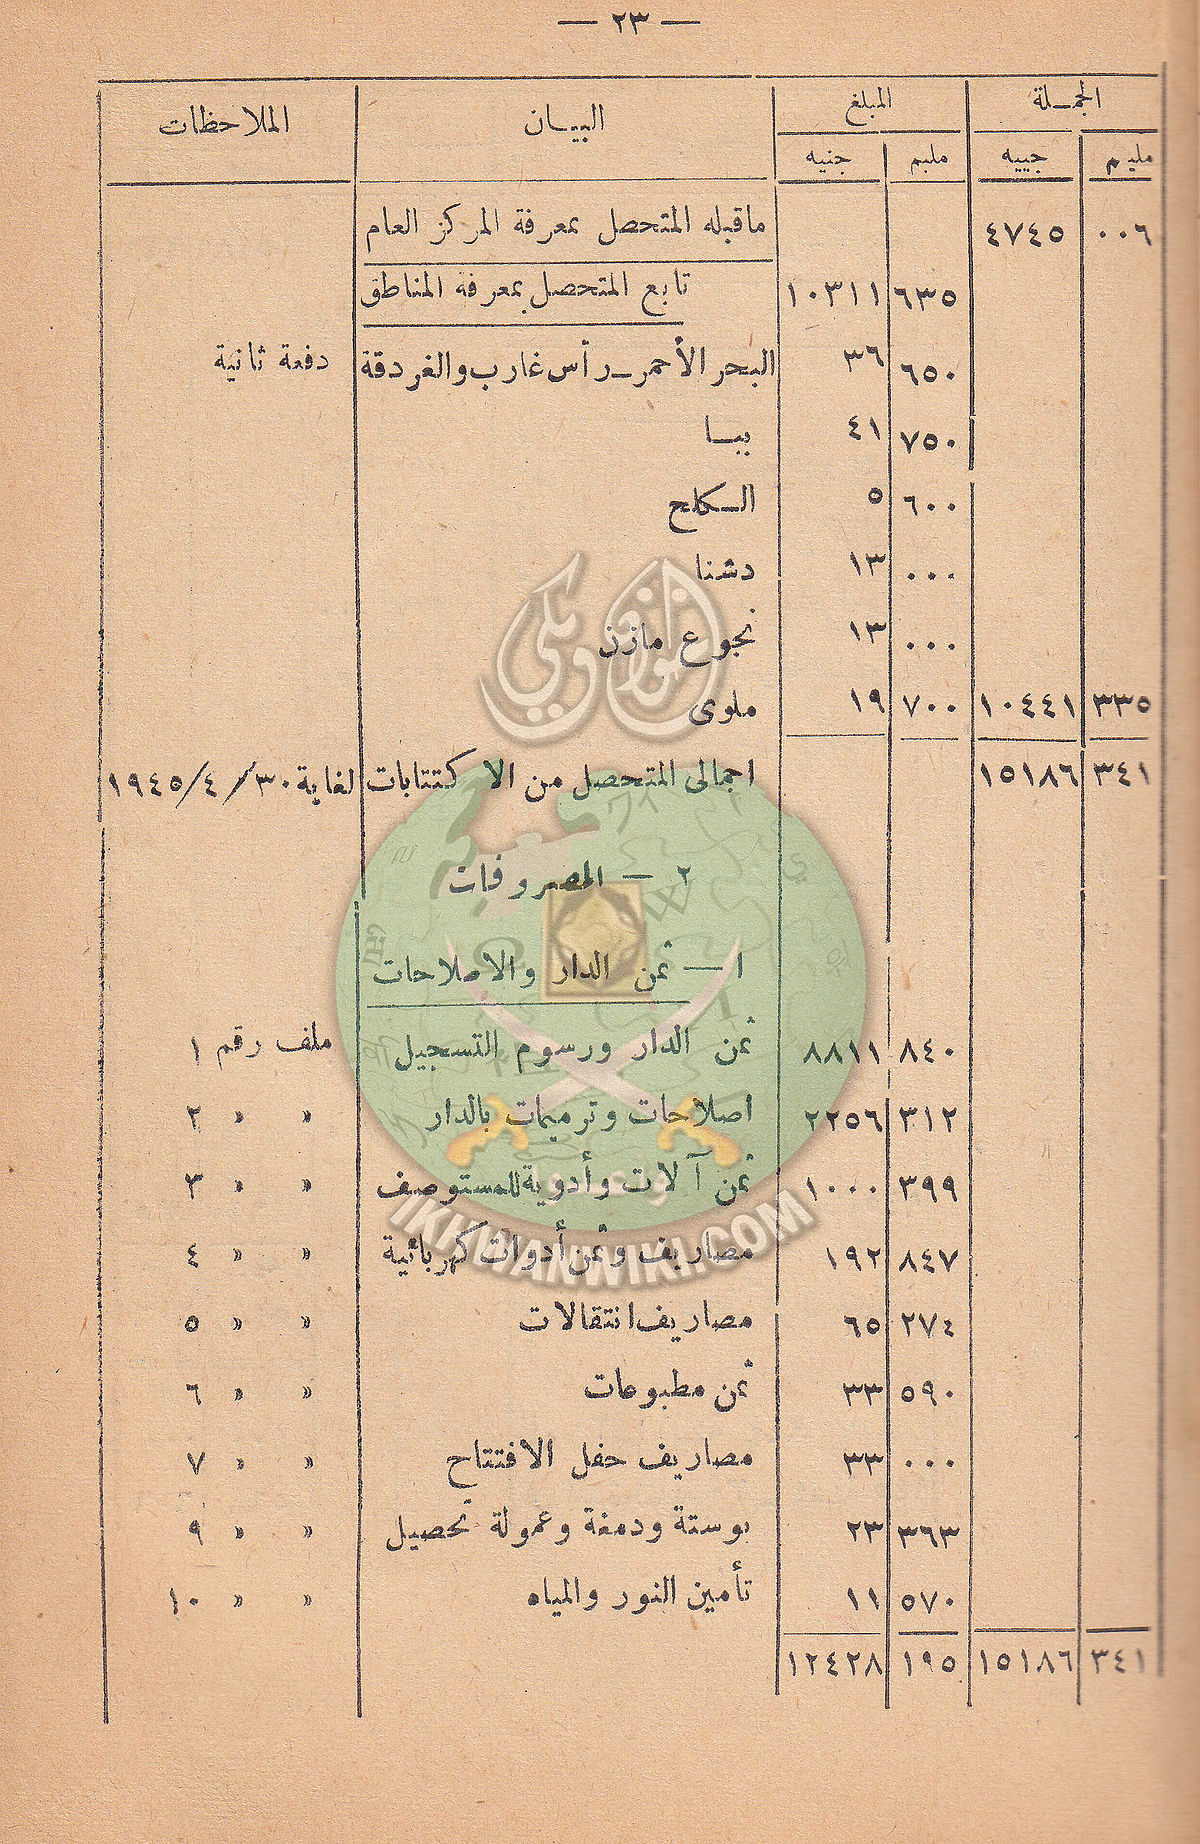 — ٢٣ —
الجمـلة المبلغ البيـــان الملاحظات
مليم جنيه مليم جنيه
٠٠٦ ٤٧٤٥ ماقبله المتحصل بمعرفة المركز العام
٦٣٥ ١٠٣١١ تابع المتحصل بمعرفة المناطق
٦٥٠ ٣٦ البحر الأحمر ــ رأس غارب والغردقة دفعة ثانية
٧٥٠ ٤١ ببــا
٦٠٠ ٥ الــكلح
٠٠٠ ١٣ دشنا
٠٠٠ ١٣ نجوع مازن
٣٣٥ ١٠٤٤١ ٧٠٠ ١٩ ملوى
٣٤١ ١٥١٨٦ اجمالى المتحصل من الاكتتابات لغاية ٣٠/٤/١٩٤٥
٢ — المصروفات
١ — ثمن الدار والاصلاحات
٨٤٠ ٨٨١١ ثمن الدار ورسوم التسجيل ملف رقم ١
٣١٢ ٢٢٥٦ اصلاحات وترميمات بالدار » » ٢
٣٩٩ ١٠٠٠ ثمن آلات وأدوية للمستوصف » » ٣
٨٤٧ ١٩٢ مصاريف وثمن أدوات كهربائية » » ٤
٢٧٤ ٦٥ مصاريف انتقالات » » ٥
٥٩٠ ٣٣ ثمن مطبوعات » » ٦
٠٠٠ ٣٣ مصاريف حفل الافتتاح » » ٧
٣٦٣ ٢٣ بوستة ودمغة وعمولة تحصيل » » ٩
٥٧٠ ١١ تأمين النور والمياه » » ١٠
٣٤١ ١٥١٨٦ ١٩٥ ١٢٤٢٨
إخوان ويكي
IKHWANWIKI.COM